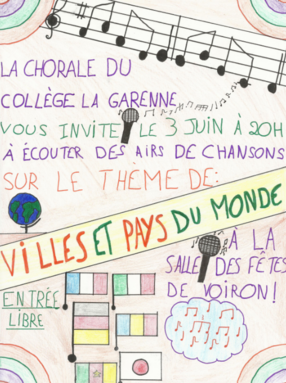 LA CHORALE DU
COLLÈGE LA GARENNE
VOUS INVITE LE 3 JUIN À 20H
À ÉCOUTER DES AIRS DE CHANSONS
SUR LE THÈME DE:
VILLES ET PAYS DU MONDE
À LA
SALLE DES FÊTES
DE VOIRON!
ENTRÉE
LIBRE